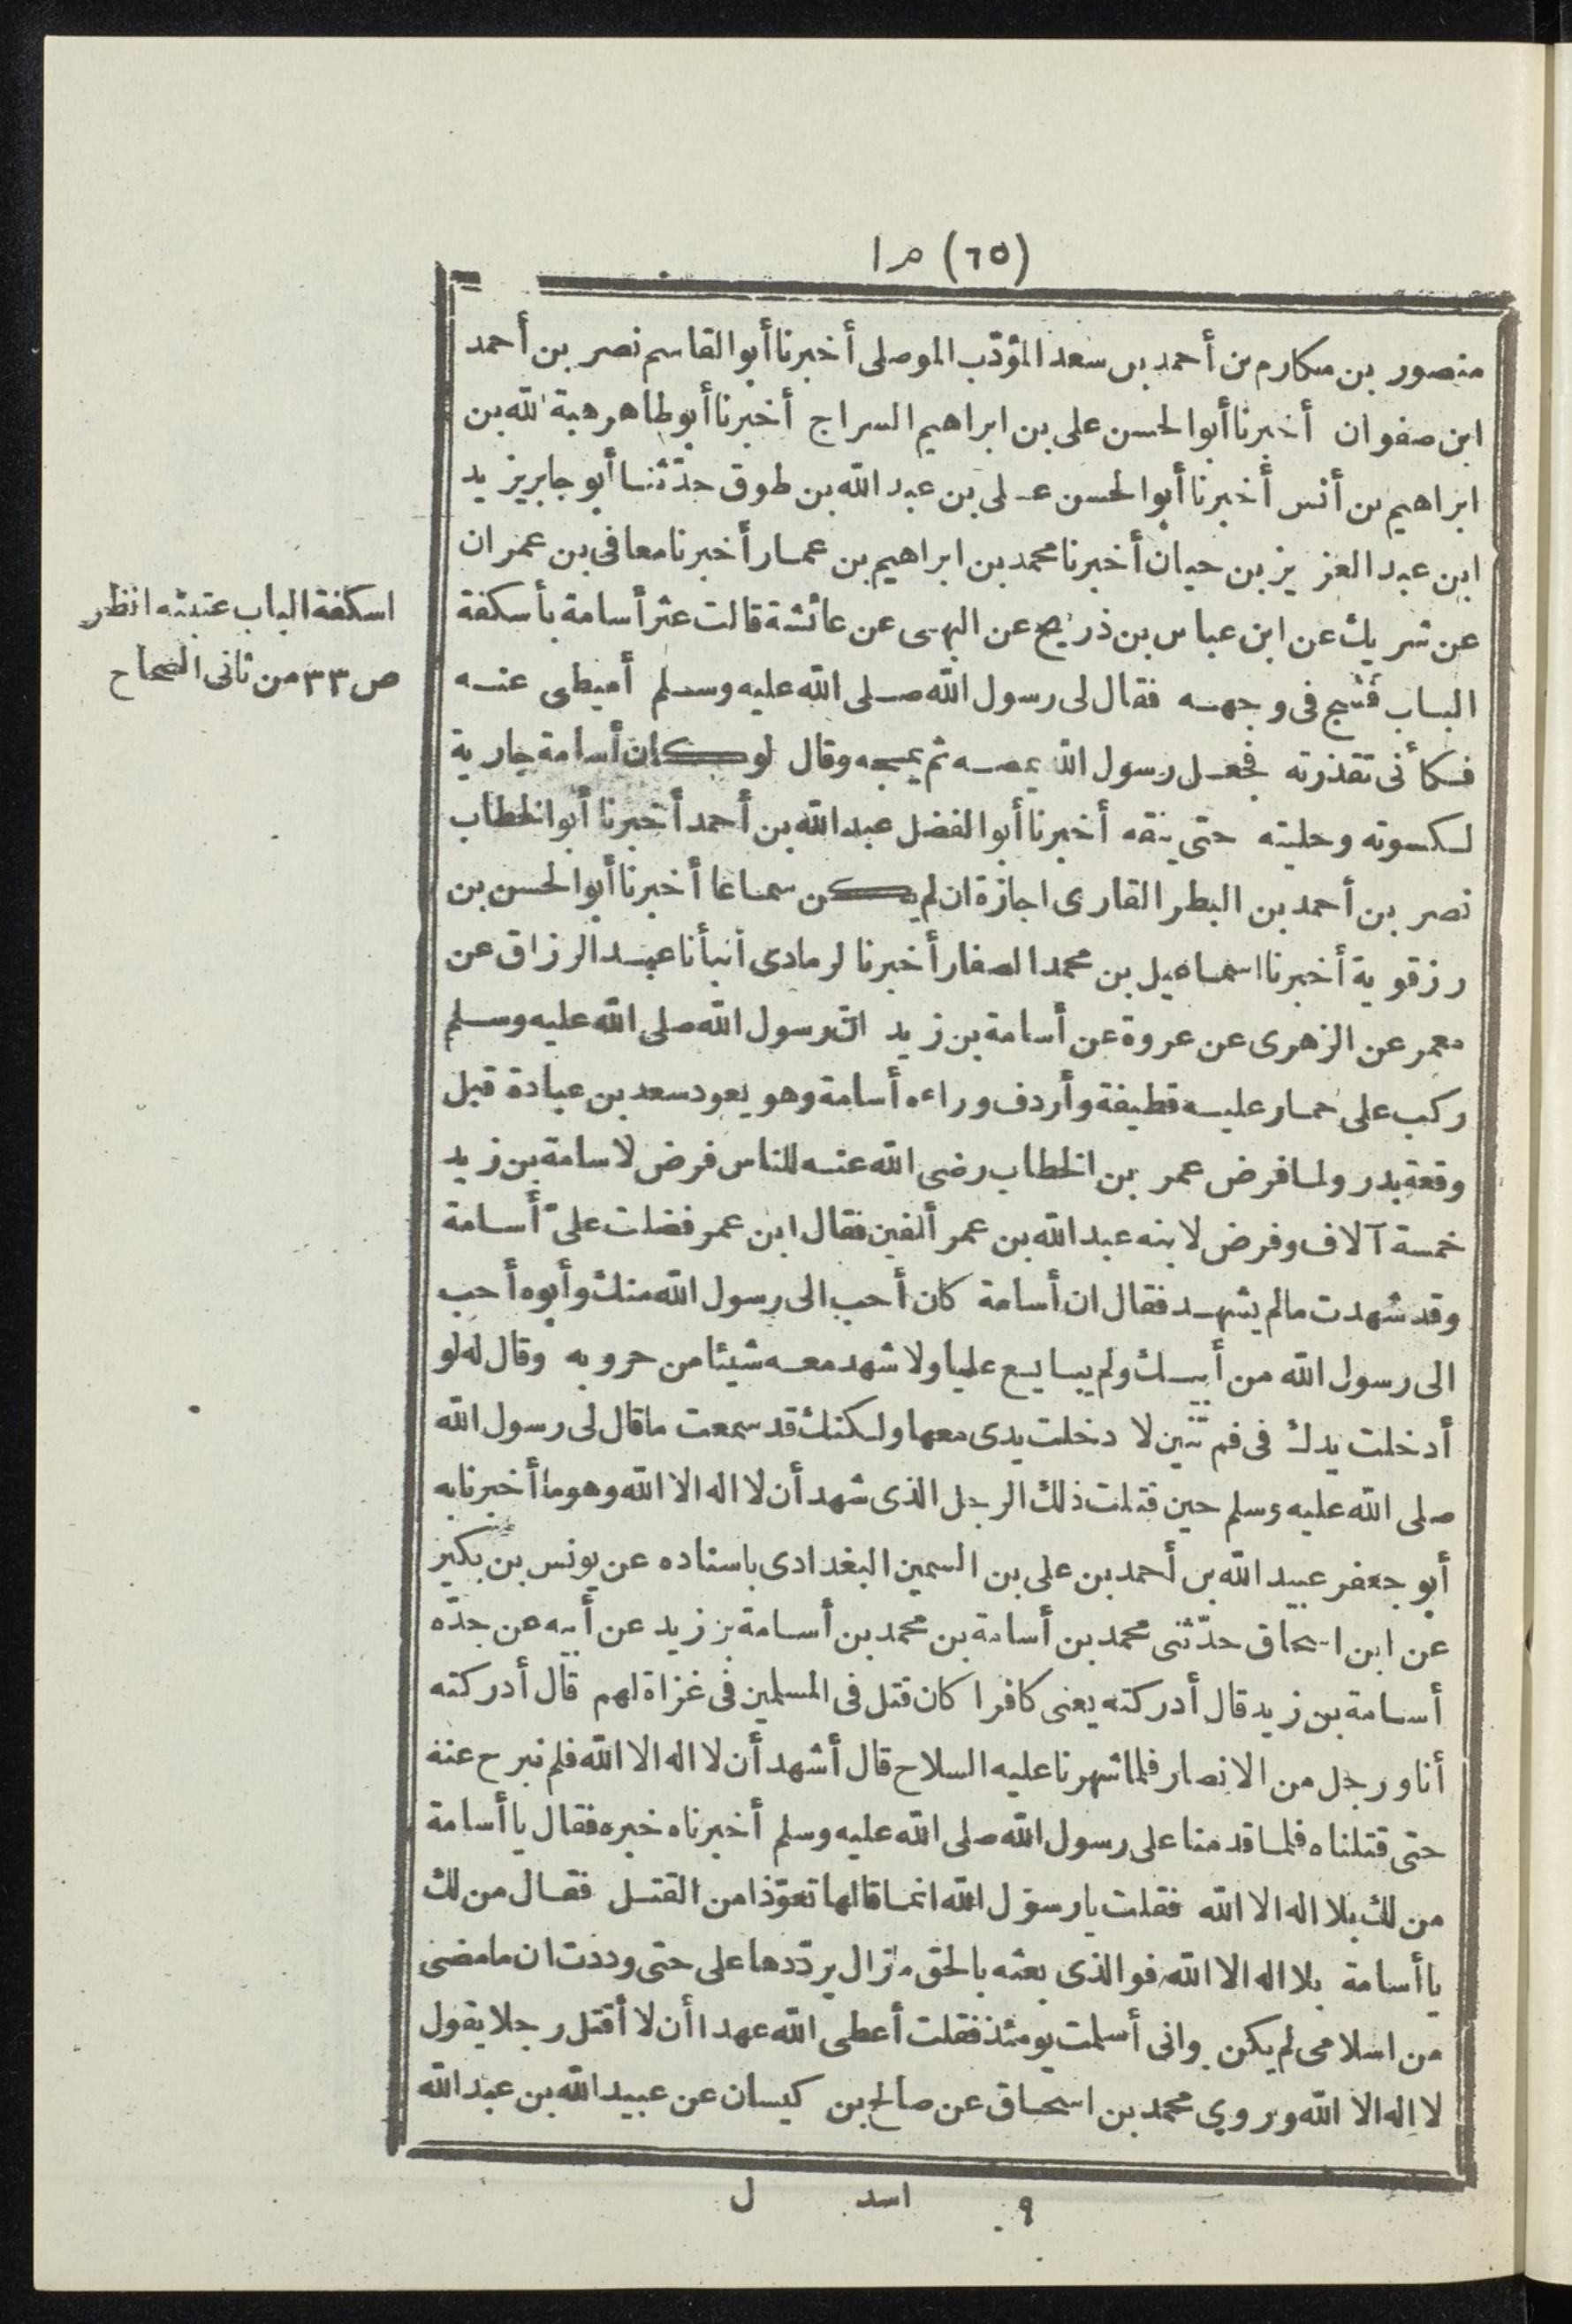 (٦٥) م ١
منصور بن مكارم بن أحمد بن سعد المؤدّب الموصلى أخبرنا أبو القاسم نصر بن أحمد
ابن صفوان أخبرنا أبو الحسن على بن ابراهيم السراج أخبرنا أبو طاهر هبة الله بن
ابراهيم بن أنس أخبرنا أبو الحسن عـلى بن عبد الله بن طوق حدّثنا أبو جابر يزيد
ابن عبد العزيز بن حيان أخبرنا محمد بن ابراهيم بن عمار أخبرنا معافى بن عمران
عن شريك عن ابن عباس بن ذريح عن البهى عن عائشة قالت عثر أسامة بأسكفة
اسكفة الباب عتبته انظر
الباب فشج فى وجهه فقال لى رسول الله صلى الله عليه وسلم أميطى عنه
ص ٣٣ من ثانى الصحاح
فكأنى تقذرته فجعل رسول الله يمصه ثم يمجه وقال لو كان أسامة جارية
لكسوته وحليته حتى ينفقه أخبرنا أبو الفضل عبد الله بن أحمد أخبرنا أبو الخطاب
نصر بن أحمد بن البطر القارى اجازة ان لم يكن سماعا أخبرنا أبو الحسن بن
رزقوية أخبرنا اسماعيل بن محمد الصفار أخبرنا لرمادى أنبأنا عبد الرزاق عن
معمر عن الزهرى عن عروة عن أسامة بن زيد انّ رسول الله صلى الله عليه وسلم
ركب على حمار عليه قطيفة وأردف وراءه أسامة وهو يعود سعد بن عبادة قبل
وقعة بدر ولما فرض عمر بن الخطاب رضى الله عنه للناس فرض لاسامة بن زيد
خمسة آلاف وفرض لابنه عبد الله بن عمر ألفين فقال ابن عمر فضلت علىّ أسامة
وقد شهدت مالم يشهد فقال ان أسامة كان أحب الى رسول الله منك وأبوه أحب
الى رسول الله من أبيك ولم يبايع عليا ولا شهد معه شيئا من حروبه وقال له لو
أدخلت يدك فى فم تنين لا دخلت يدى معها ولكنك قد سمعت ما قال لى رسول الله
صلى الله عليه وسلم حين قتلت ذلك الرجل الذى شهد أن لا اله الا الله وهو ما أخبرنا به
أبو جعفر عبيد الله بن أحمد بن على بن السمين البغدادى باسناده عن يونس بن بكير
عن ابن اسحاق حدّثنى محمد بن أسامة بن محمد بن أسامة بن زيد عن أبيه عن جدّه
أسامة بن زيد قال أدركته يعنى كافرا كان قتل فى المسلمين فى غزاة لهم قال أدركته
أنا ورجل من الانصار فلما شهرنا عليه السلاح قال أشهد أن لا اله الا الله فلم نبرح عنه
حتى قتلناه فلما قدمنا على رسول الله صلى الله عليه وسلم أخبرناه خبره فقال يا أسامة
من لك بلا اله الا الله فقلت يا رسول الله انما قالها تعوّذا من القتل فقال من لك
يا أسامة بلا اله الا الله فو الذى بعثه بالحق ما زال يردّدها على حتى وددت ان ما مضى
من اسلامى لم يكن وانى أسلمت يومئذ فقلت أعطى الله عهدا أن لا أقتل رجلا يقول
لا اله الا الله وروى محمد بن اسحاق عن صالح بن كيسان عن عبيد الله بن عبد الله
٩ اسد ل